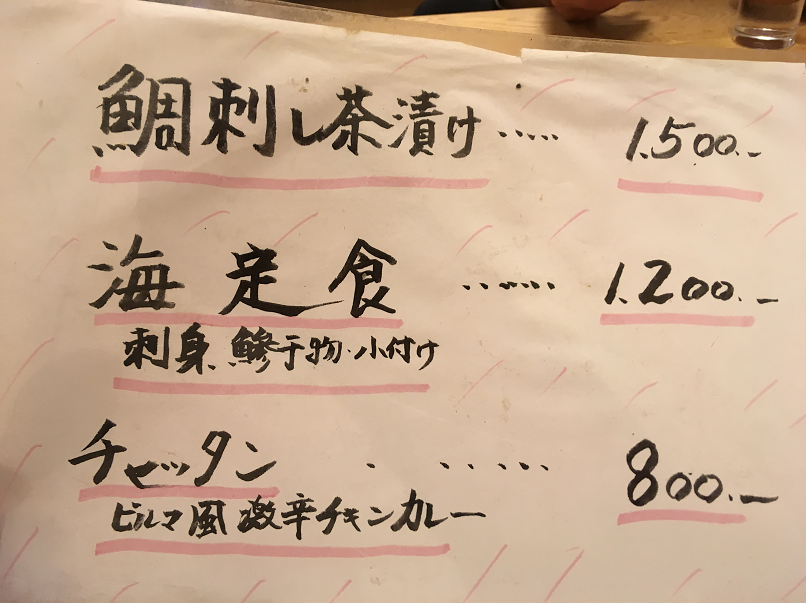 鯛刺し茶漬け ‥‥‥ 1.500.-
海定食 ‥‥‥ 1.200.-
刺身 鯵干物・小付け
チャッタン ・ ‥‥‥ 800.-
ビルマ風激辛チキンカレー